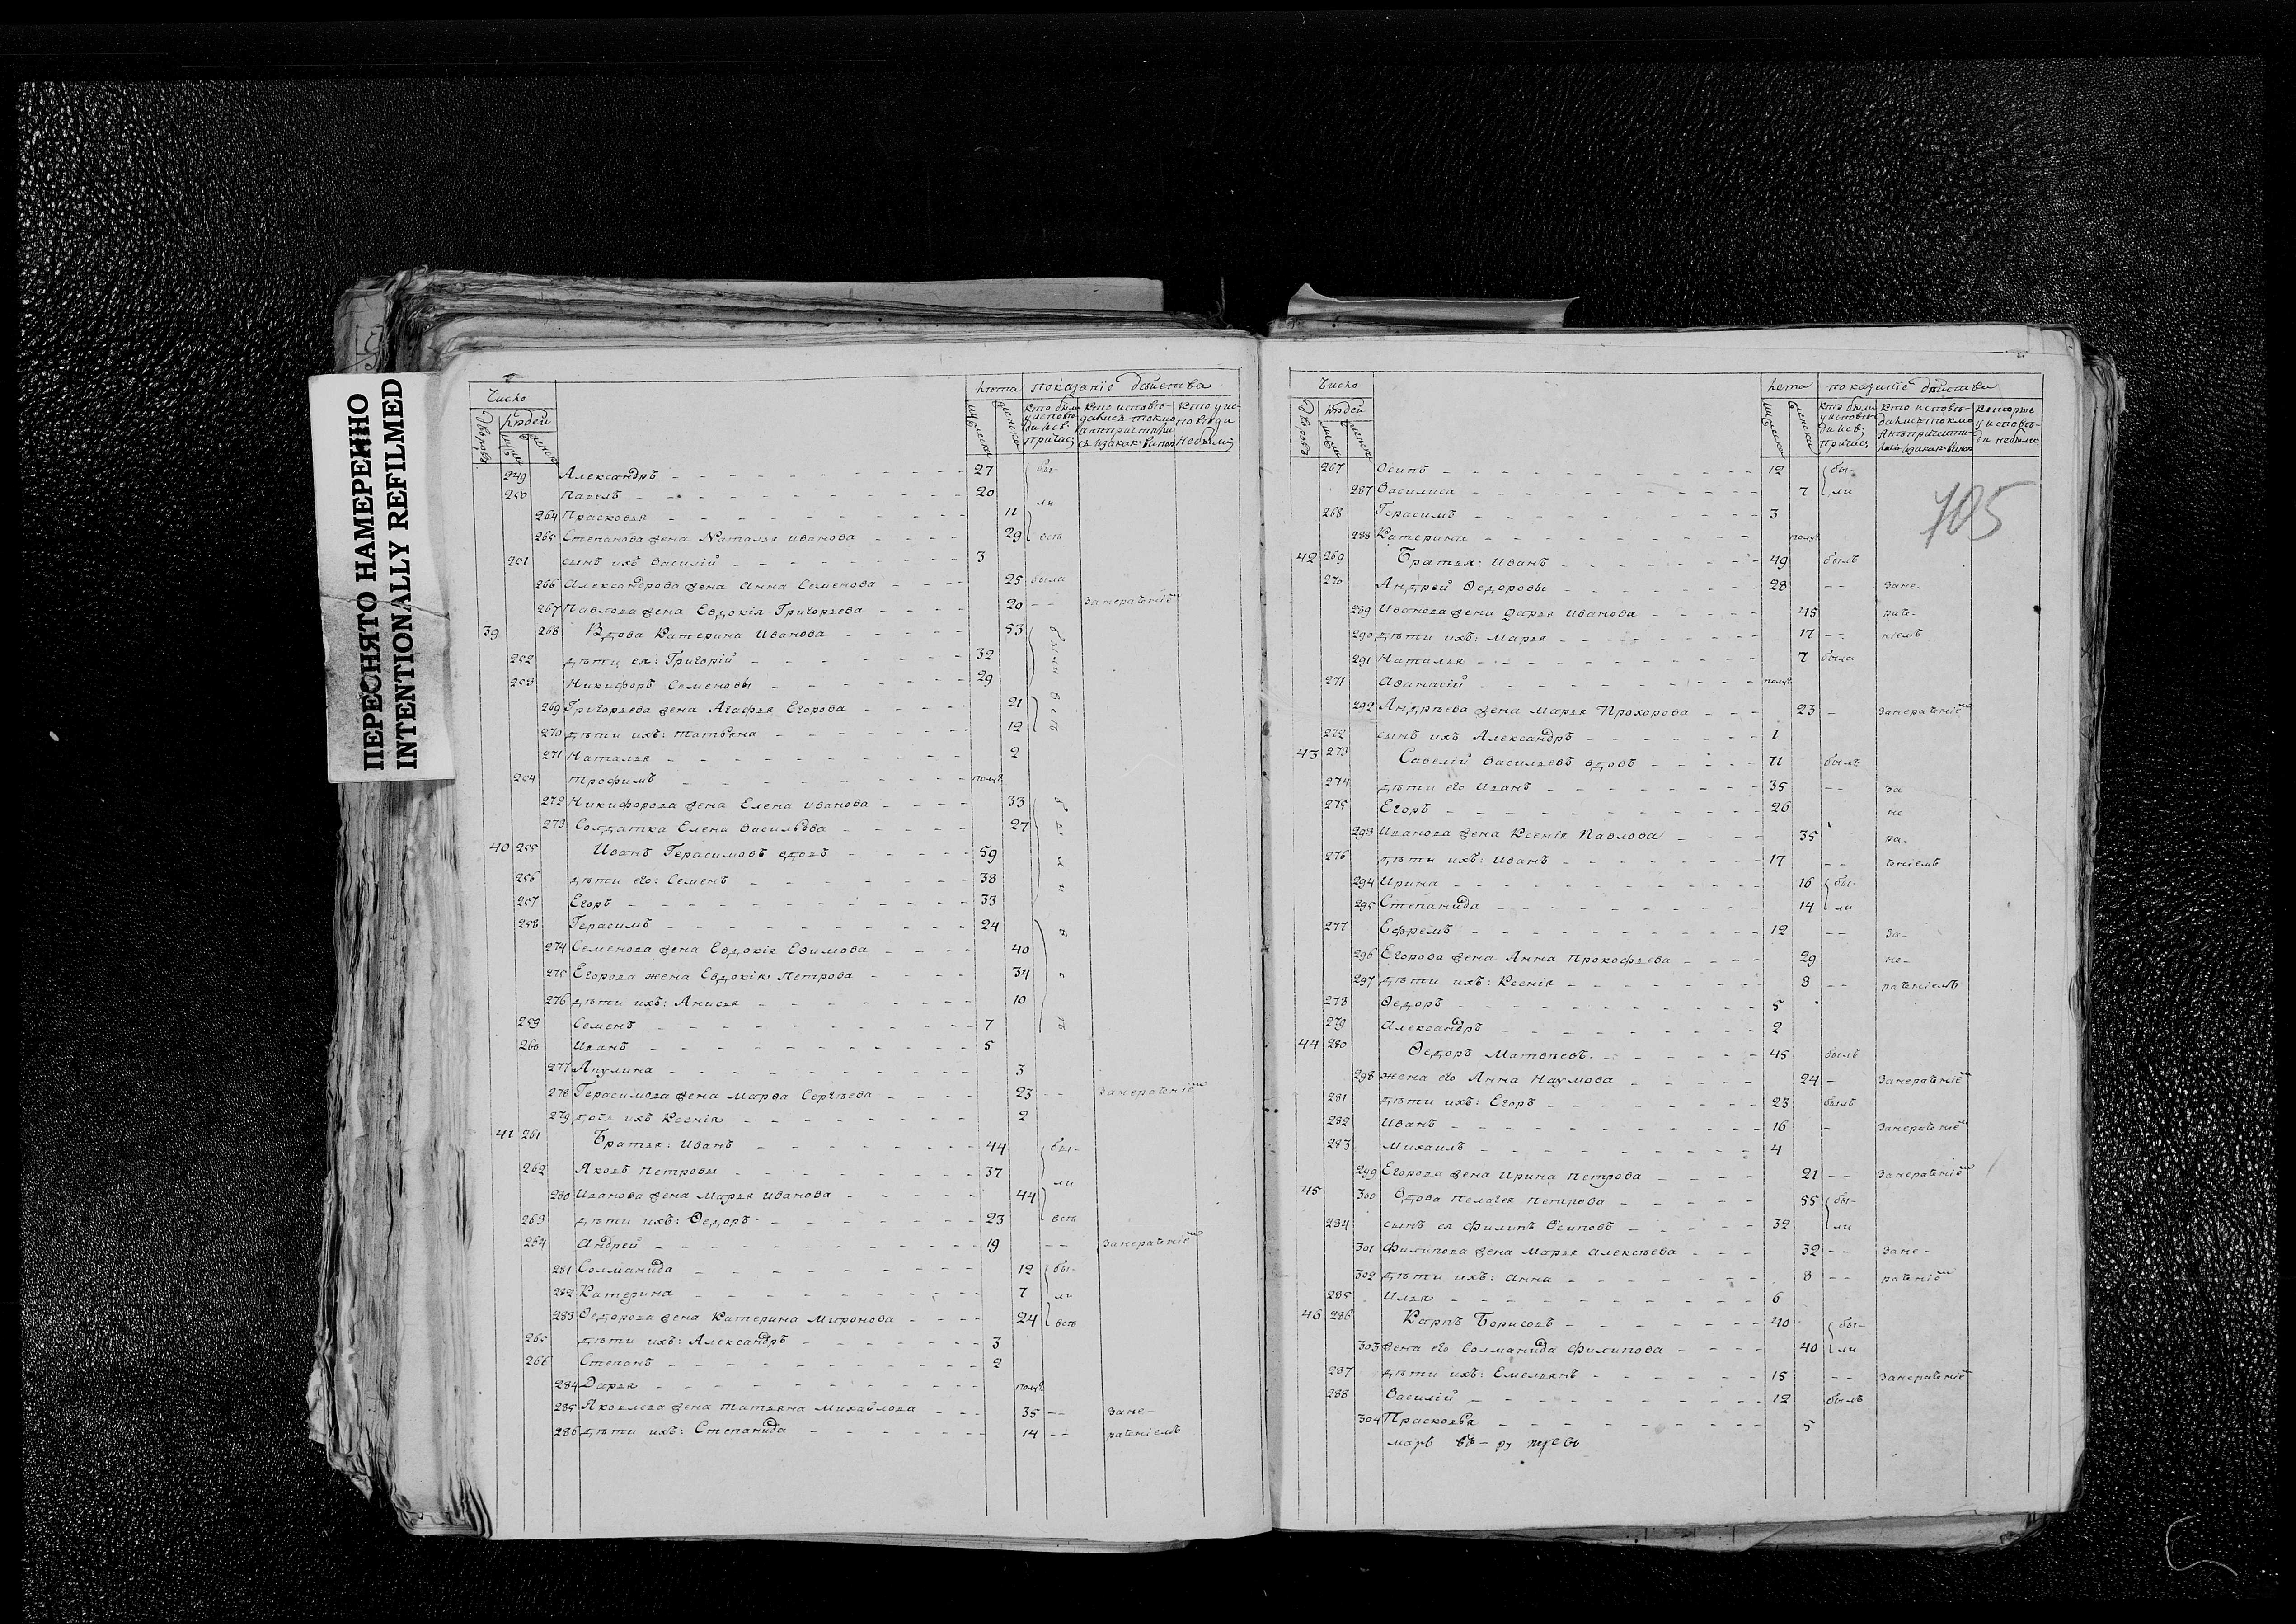 ПЕРЕСНЯТО НАМЕРЕННО
INTENTIONALLY REFILMED
Число лѣта показанiе дѣйства
дворовъ людей
249 Александръ 27 бы-
250 Павелъ 20 ли
264 Прасковья 11
265 Степанова жена Наталья Иванова 29 всѣ
251 сынъ ихъ Василiй 3
266 Александрова жена Анна Семенова 25 была
267 Павлова жена Евдокiя Григорьева 20 -- Занераченiемъ
39 268 Вдова Катерина Иванова 53 были
252 дѣти ея: Григорiй 32
253 Никифоръ Семеновы 29 всѣ
269 Григорьева жена Агафья Егорова 21
270 дѣти ихъ: татьяна 12
271 Наталья 2
254 трофимъ полуг
272 Никифорова жена Елена Иванова 33 были
273 Солдатка Елена Васильева 27
40 255 Иванъ Герасимовъ вдовъ 59
256 дѣти его: Семенъ 38
257 Егоръ 33
258 Герасимъ 24 всѣ
274 Семенова жена Евдокiя Евимова 40
275 Егорова жена Евдокiя Петрова 34
276 дѣти ихъ: Анисья 10
259 Семенъ 7
260 Иванъ 5
277 Акулина 3
278 Герасимова жена Марѳа Сергѣева 23 -- Занераченiемъ
279 дочь ихъ Ксенiя 2
41 261 Братья: Иванъ 44 бы-
262 Яковъ Петровы 37 ли
280 Иванова жена Марья Иванова 44
263 дѣти ихъ: Ѳедоръ 23 всѣ
264 Андрей 19 -- Занераченiемъ
281 Солманида 12 бы-
282 Катерина 7 ли
283 Ѳедорова жена Катерина Миронова 24 всѣ
265 дѣти ихъ: Александръ 3
266 Степанъ 2
284 Дарья полуг
285 Яковлева жена татьяна Михайлова 35 -- Зане-
286 дѣти ихъ: Степанида 14 -- раченiемъ
Число лета показанiе дѣйства
дворовъ людей
705
267 Осипъ 12 бы-
287 Василиса 7 ли
268 Герасимъ 3
288 Катерина полуг
42 269 Братья: Иванъ 49 былъ
270 Андрей Ѳедоровы 28 -- Зане-
289 Иванова жена Дарья Иванова 45 раче-
290 дѣти ихъ: Марья 17 -- нiемъ
291 Наталья 7 была
271 Аѳанасiй полуг
292 Андрѣева жена Марья Прохорова 23 - Занераченiемъ
272 сынъ ихъ Александръ 1
43 273 Савелiй Васильевъ вдовъ 71 былъ
274 дѣти его Иванъ 35 -- За
275 Егоръ 26 не
293 Иванова жена Ксенiя Павлова 35 ра-
276 дѣти ихъ: Иванъ 17 -- ченiемъ
294 Ирина 16 бы-
295 Степанида 14 ли
277 Ефремъ 12 -- За-
296 Егорова жена Анна Прокофьева 29 не-
297 дѣти ихъ: Ксенiя 8 -- раченiемъ
278 Ѳедоръ 5
279 Александръ 2
44 280 Ѳедоръ Матвѣевъ 45 былъ
298 жена его Анна Наумова 24 - Занераченiемъ
281 дѣти ихъ: Егоръ 23 былъ
282 Иванъ 16 - Занераченiемъ
283 Михаилъ 4
299 Егорова жена Ирина Петрова 21 -- Занераченiемъ
45 300 Вдова Пелагея Петрова 55 бы-
284 сынъ ея Филипъ Осиповъ 32 ли
301 Филипова жена Марья Алексѣева 32 -- Зане-
302 дѣти ихъ: Анна 8 -- раченiемъ
285 Илья 6
46 286 Карпъ Борисовъ 40 бы-
303 жена его Солманида Филипова 40 ли
287 дѣти ихъ: Емельянъ 15 -- Занераченiемъ
288 Василiй 12 былъ
304 Прасковья 5